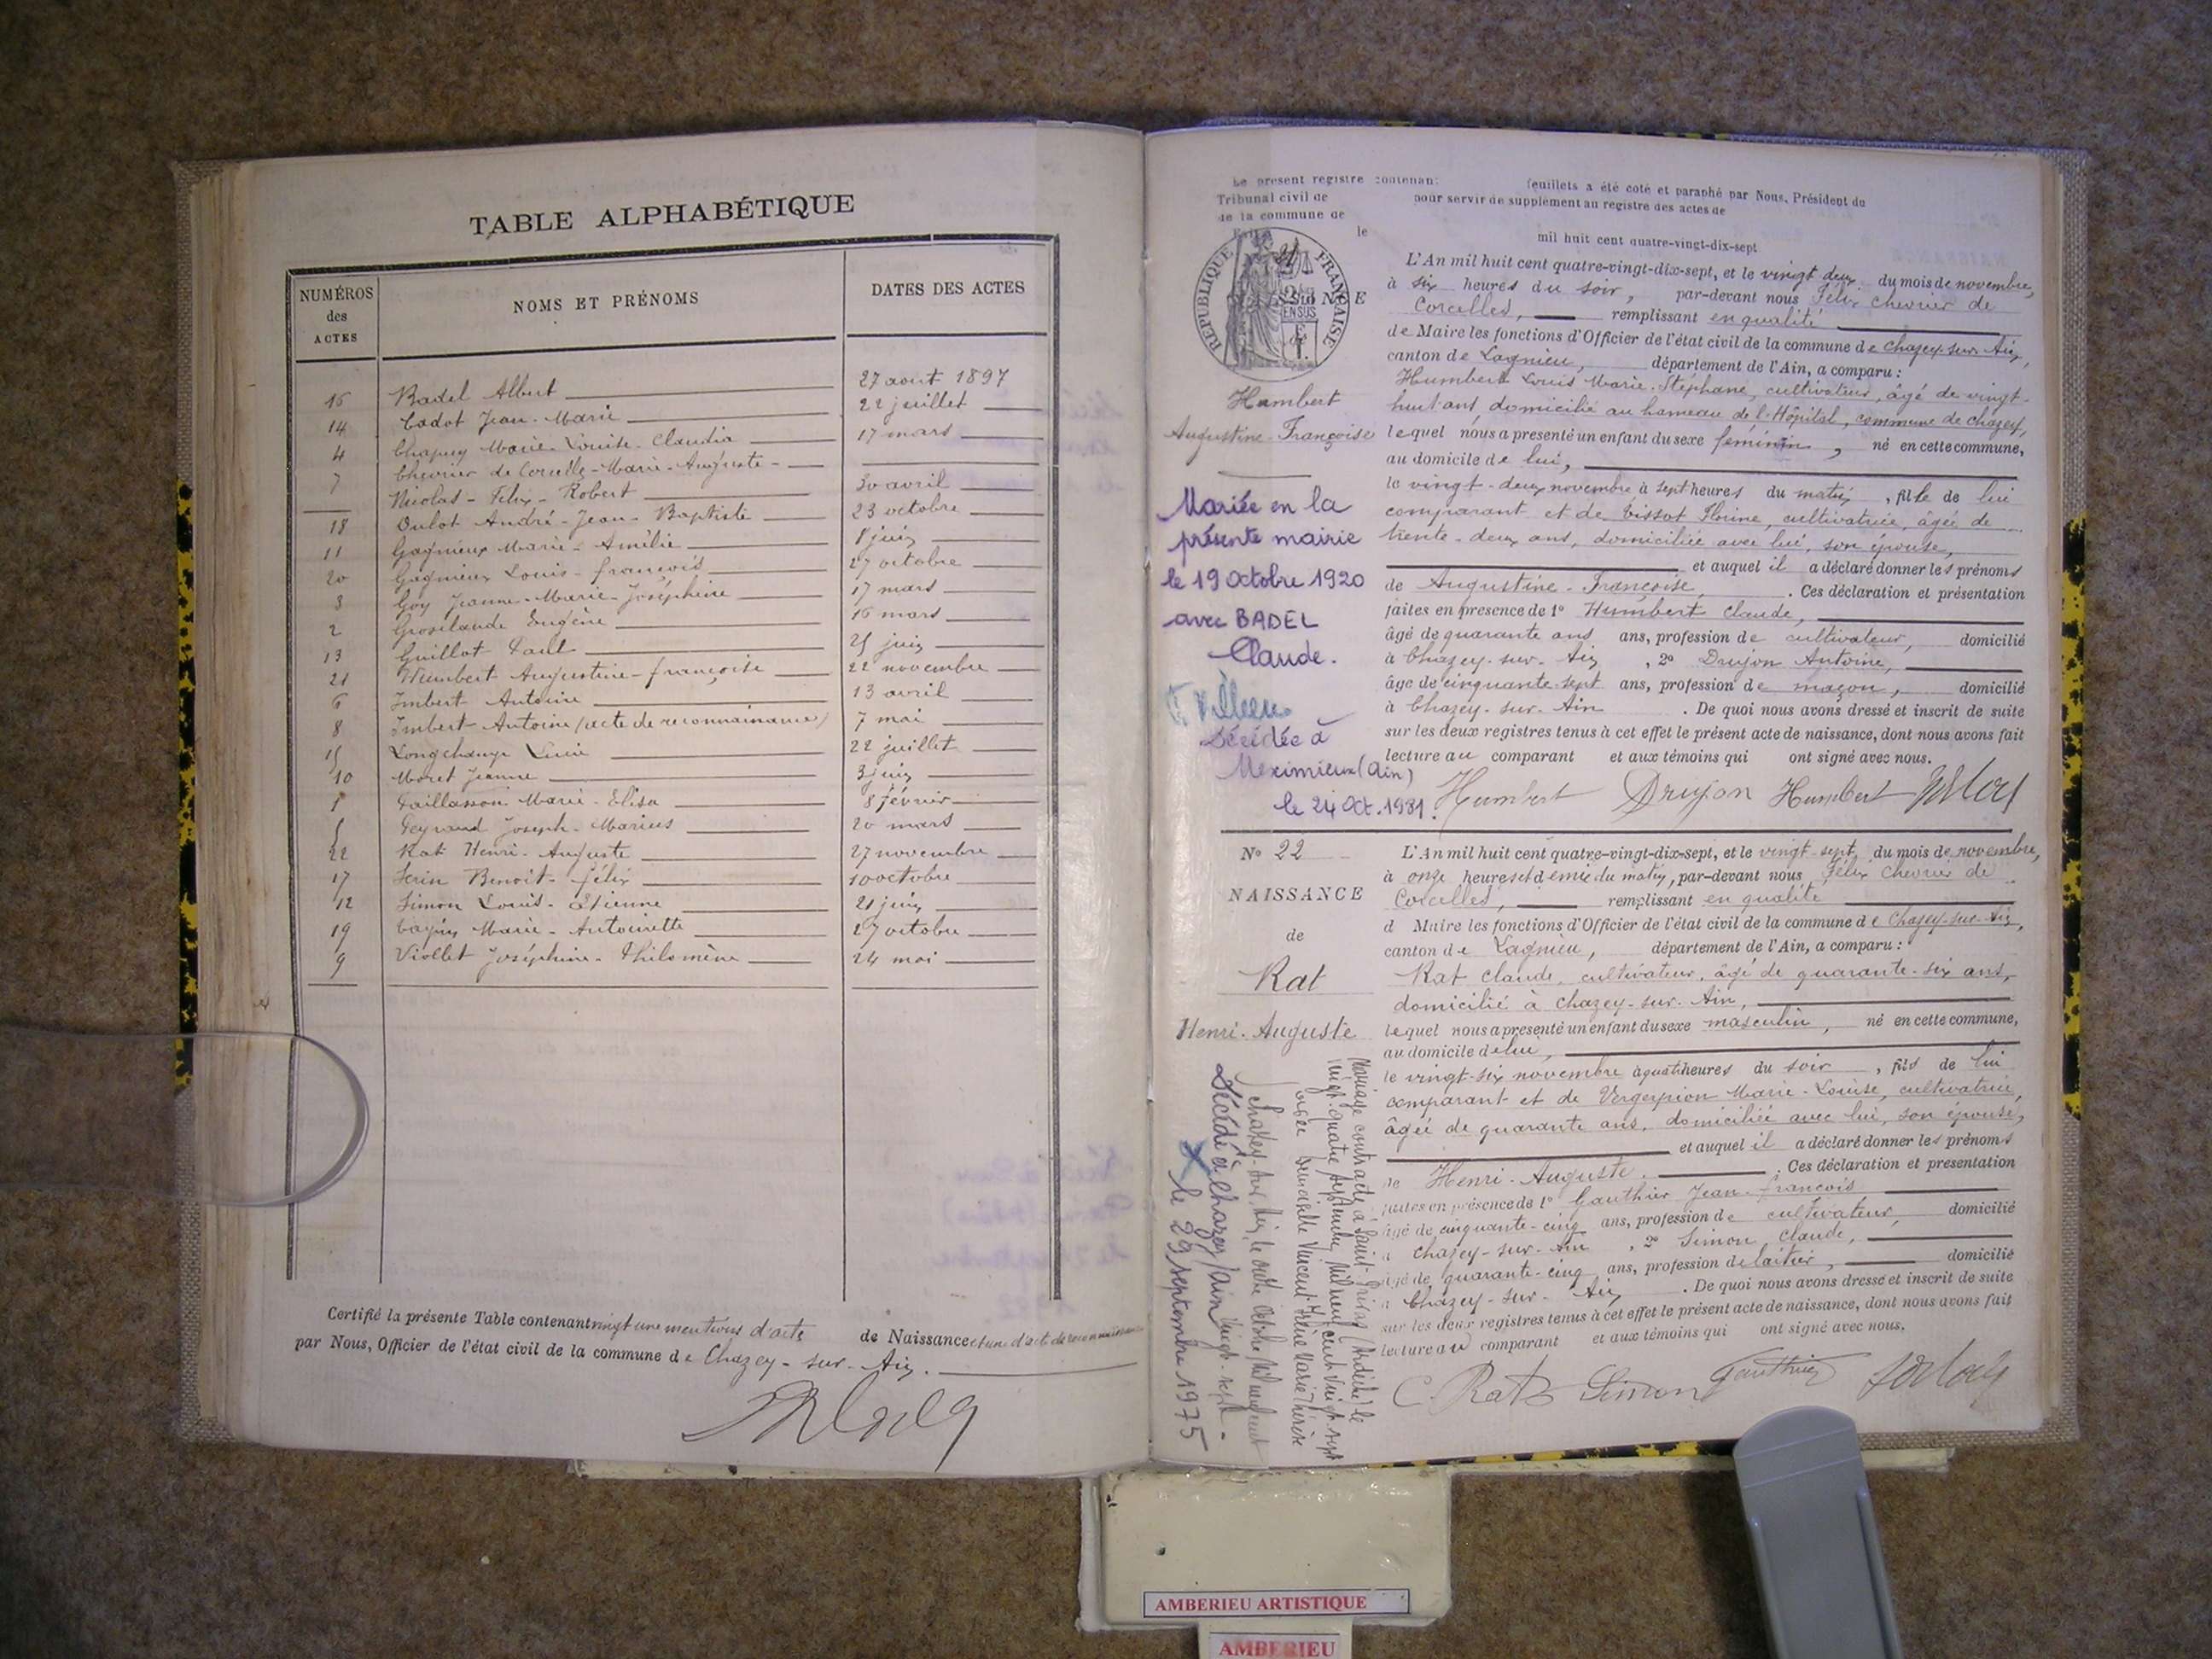 TABLE ALPHABÉTIQUE
NUMÉROS des ACTES
NOMS ET PRÉNOMS
DATES DES ACTES
16 Badel Albert 27 aout 1897
14 Cadot Jean-Marie 22 juillet
4 Chapuy Marie-Louise-Claudia 17 mars
7 Chevrier de Corcelle-Marie-Auguste-
Nicolas-Félix-Robert 30 avril
18 Dulot André-Jean-Baptiste 23 octobre
11 Gagnieux Marie-Amélie 8 juin
20 Gagnieux Louis-françois 27 octobre
3 Goy Jeanne-Marie-Joséphine 17 mars
2 Groslaude Eugène 16 mars
13 Guillot Paul 25 juin
21 Humbert Augustine-françoise 22 novembre
6 Imbert Antoine 13 avril
8 Imbert Antoine (acte de reconnaissance) 7 mai
15 Longchamp Lucie 22 juillet
10 Moret Jeanne 3 juin
1 Taillasson Marie-Elisa 8 février
5 Peyraud Joseph-Marius 20 mars
22 Rat Henri-Auguste 27 novembre
17 Serin Benoit-félix 10 octobre
12 Simon Louis-Etienne 21 juin
19 Marie-Antoinette 27 octobre
9 Viollet Joséphine-Philomène 24 mai
Certifié la présente Table contenant vingt une mentions d'acte de Naissance et une d'acte de reconnaissance
par Nous, Officier de l'état civil de la commune de Chazey-sur-Ain.
Le présent registre contenant feuillets a été coté et paraphé par Nous, Président du
Tribunal civil de pour servir de supplément au registre des actes de
de la commune de
le mil huit cent quatre-vingt-dix-sept
REPUBLIQUE FRANÇAISE
21
L'An mil huit cent quatre-vingt-dix-sept, et le vingt deux du mois de novembre,
à six heures du soir, par-devant nous Félix Chevrier de
Corcelles, remplissant en qualité
de Maire les fonctions d'Officier de l'état civil de la commune de Chazey-sur-Ain,
canton de Lagnieu, département de l'Ain, a comparu :
Humbert Louis Marie-Stéphane, cultivateur, âgé de vingt-
huit ans, domicilié au hameau de l'Hôpital, commune de chazey,
lequel nous a presenté un enfant du sexe féminin, né en cette commune,
au domicile de lui,
le vingt-deux novembre à sept heures du matin, fille de lui
comparant et de Tissot Florine, cultivatrice, âgée de
trente-deux ans, domiciliée avec lui, son épouse,
et auquel il a déclaré donner les prénoms
de Augustine-Françoise. Ces déclaration et présentation
faites en présence de 1° Humbert Claude,
âgé de quarante ans ans, profession de cultivateur, domicilié
à Chazey-sur-Ain, 2° Drujon Antoine,
âgé de cinquante-sept ans, profession de maçon, domicilié
à Chazey-sur-Ain. De quoi nous avons dressé et inscrit de suite
sur les deux registres tenus à cet effet le présent acte de naissance, dont nous avons fait
lecture au comparant et aux témoins qui ont signé avec nous.
Humbert Drujon Humbert
Humbert
Augustine-Françoise
Mariée en la
présente mairie
le 19 Octobre 1920
avec BADEL
Claude.
Décédée à
Meximieux (Ain)
le 24 Oct. 1981.
N° 22
NAISSANCE
de
Rat
Henri-Auguste
L'An mil huit cent quatre-vingt-dix-sept, et le vingt-sept du mois de novembre,
à onze heures et demie du matin, par-devant nous Félix Chevrier de
Corcelles, remplissant en qualité
d Maire les fonctions d'Officier de l'état civil de la commune de Chazey-sur-Ain,
canton de Lagnieu, département de l'Ain, a comparu :
Rat Claude, cultivateur, âgé de quarante-six ans,
domicilié à Chazey-sur-Ain,
lequel nous a présenté un enfant du sexe masculin, né en cette commune,
au domicile de lui,
le vingt-six novembre à quatre heures du soir, fils de lui
comparant et de Vergerpion Marie-Louise, cultivatrice,
âgée de quarante ans, domiciliée avec lui, son épouse,
et auquel il a déclaré donner les prénoms
de Henri-Auguste. Ces déclaration et présentation
faites en présence de 1° Gauthier Jean-françois
âgé de cinquante-cinq ans, profession de cultivateur, domicilié
à Chazey-sur-Ain, 2° Simon Claude,
âgé de quarante-cinq ans, profession de laitier, domicilié
à Chazey-sur-Ain. De quoi nous avons dressé et inscrit de suite
sur les deux registres tenus à cet effet le présent acte de naissance, dont nous avons fait
lecture au comparant et aux témoins qui ont signé avec nous.
C. Rat Simon Gauthier
Mariage contracté à Saint-Privas (Ardèche) le
vingt quatre septembre mil neuf cent vingt-sept
avec demoiselle Vincent Irène Marie Thérèse
Chazey-sur-Ain, le octobre mil neuf cent
vingt-sept-
Décédé à Chazey/Ain
le 29 septembre 1975
AMBERIEU ARTISTIQUE
AMBERIEU